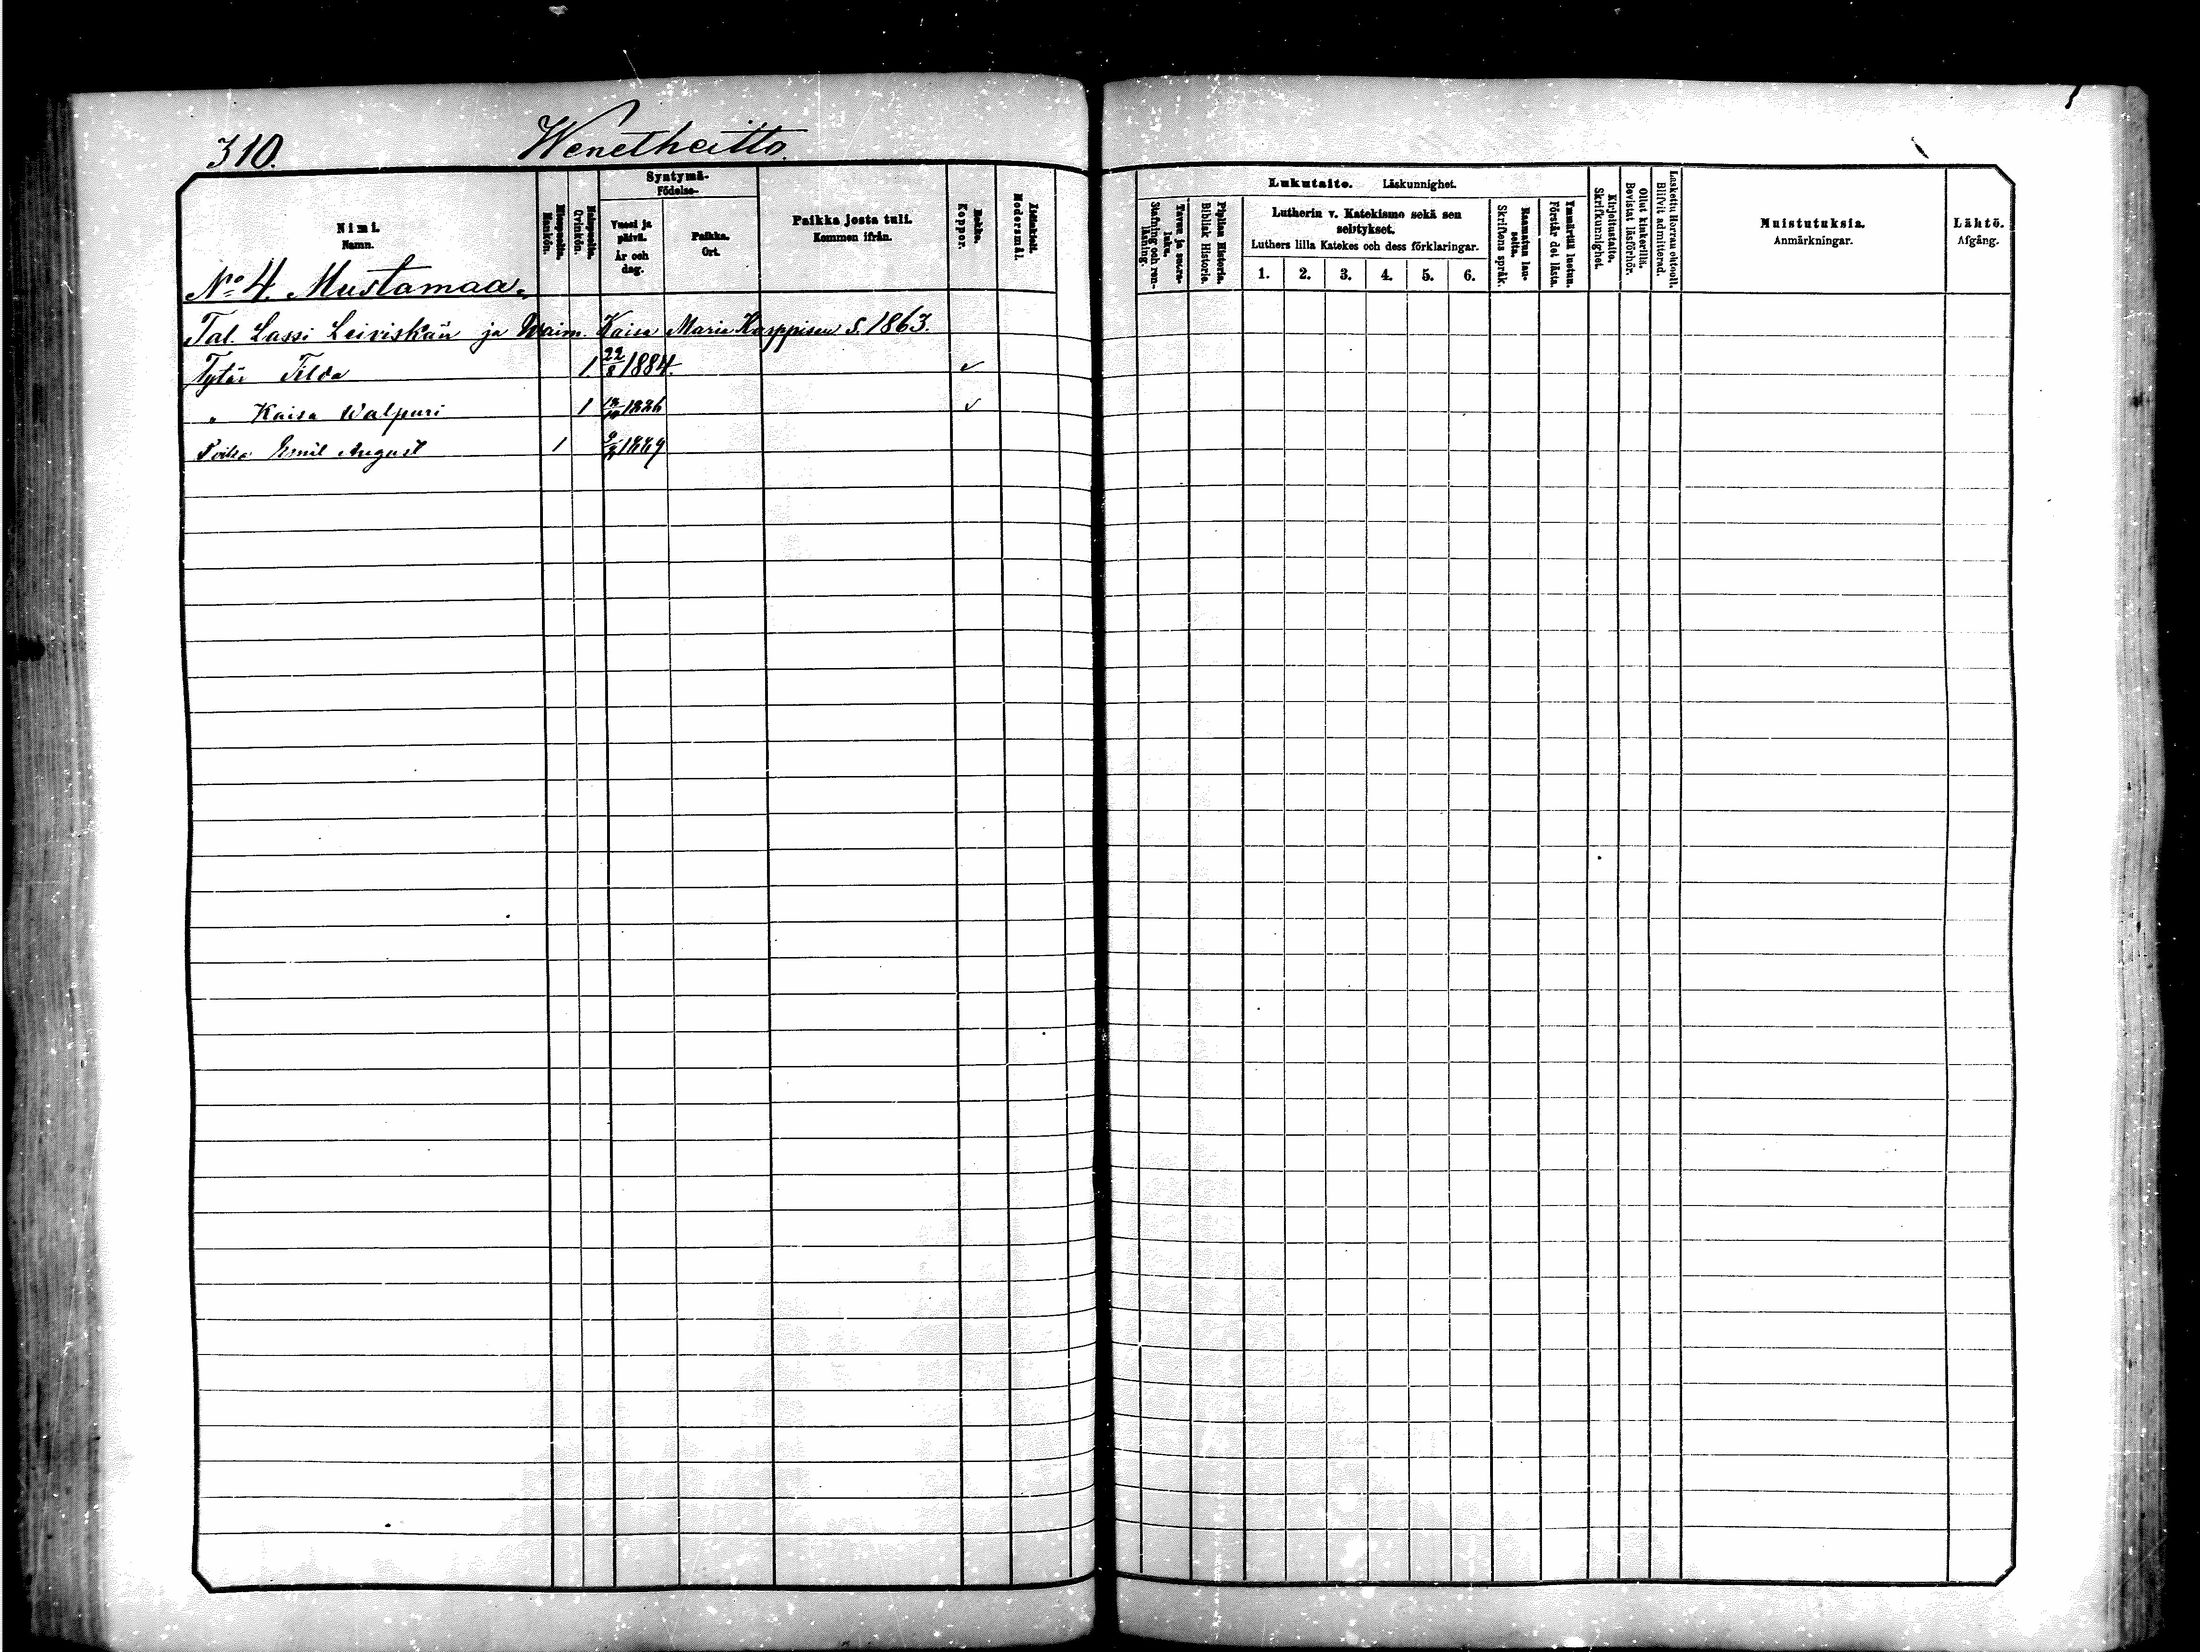 310. Wenetheitto.
Nimi.
Namn.
Miespuolia.
Mankön.
Naispuolia.
Qvinkön.
Syntymä-
Födelse-
Vuosi ja päivä.
År och dag.
Paikka.
Ort.
Paikka josta tuli.
Kommen ifrån.
Rokko.
Koppor.
Äidinkieli.
Modersmål.
Lukutaito. Läskunnighet.
Tavuu ja suora-
luku.
Stafning och ren-
läsning.
Piplian Historia.
Biblisk Historie.
Lutherin v. Katekismo sekä sen
selitykset.
Luthers lilla Katekes och dess förklaringar.
1. 2. 3. 4. 5. 6.
Raamatun lau-
seita.
Skriftens språk.
Ymmärtää luetun.
Förstår det lästa.
Kirjoitustaito.
Skrifkunnighet.
Ollut kinkerillä.
Bevistat läsförhör.
Laskettu Herran ehtooll.
Blifvit admitterad.
Muistutuksia.
Anmärkningar.
Lähtö.
Afgång.
No 4. Mustamaa.
Tal. Lassi Leiviskän ja Waim. Kaisa Maria Karppisen S. 1863.
Tytär Tilda 1. 22/8 1884.
„ Kaisa Walpuri 1 1886
Poika Emil August 1 1889